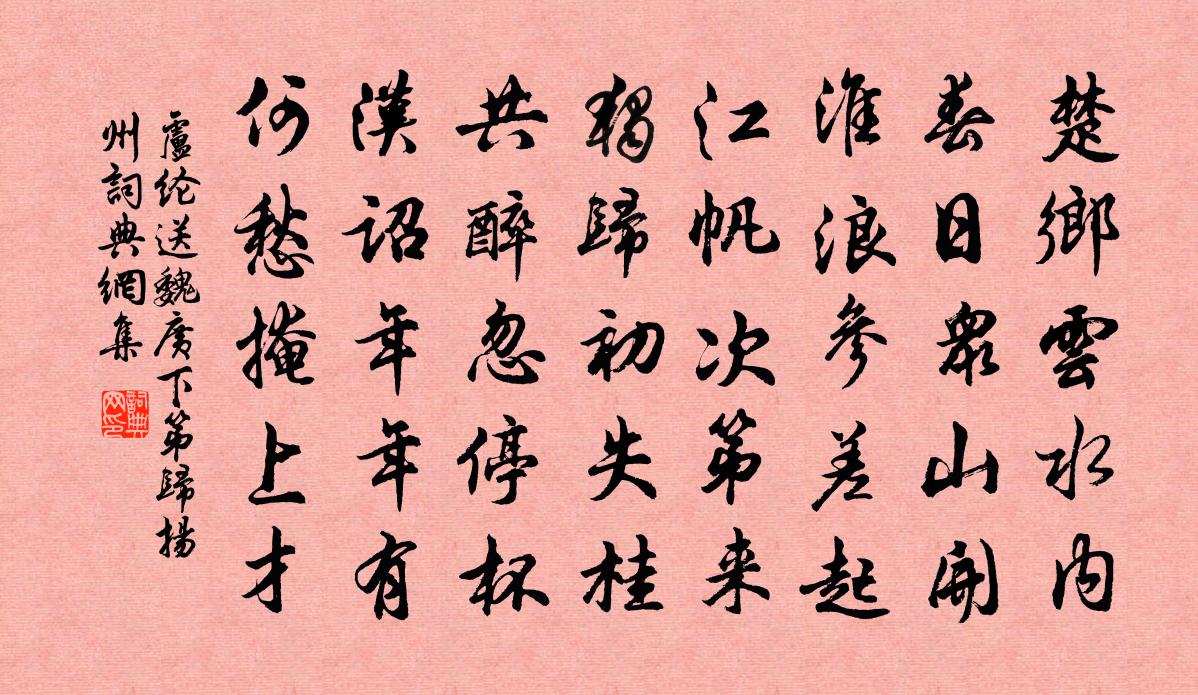 楚鄉雲水內
春日眾山開
淮浪參差起
江帆次第来
獨歸初失桂
共醉忽停杯
漢詔年年有
何愁掩上才
盧纶送魏廣下第歸揚
州詞典網集
詞典
网印